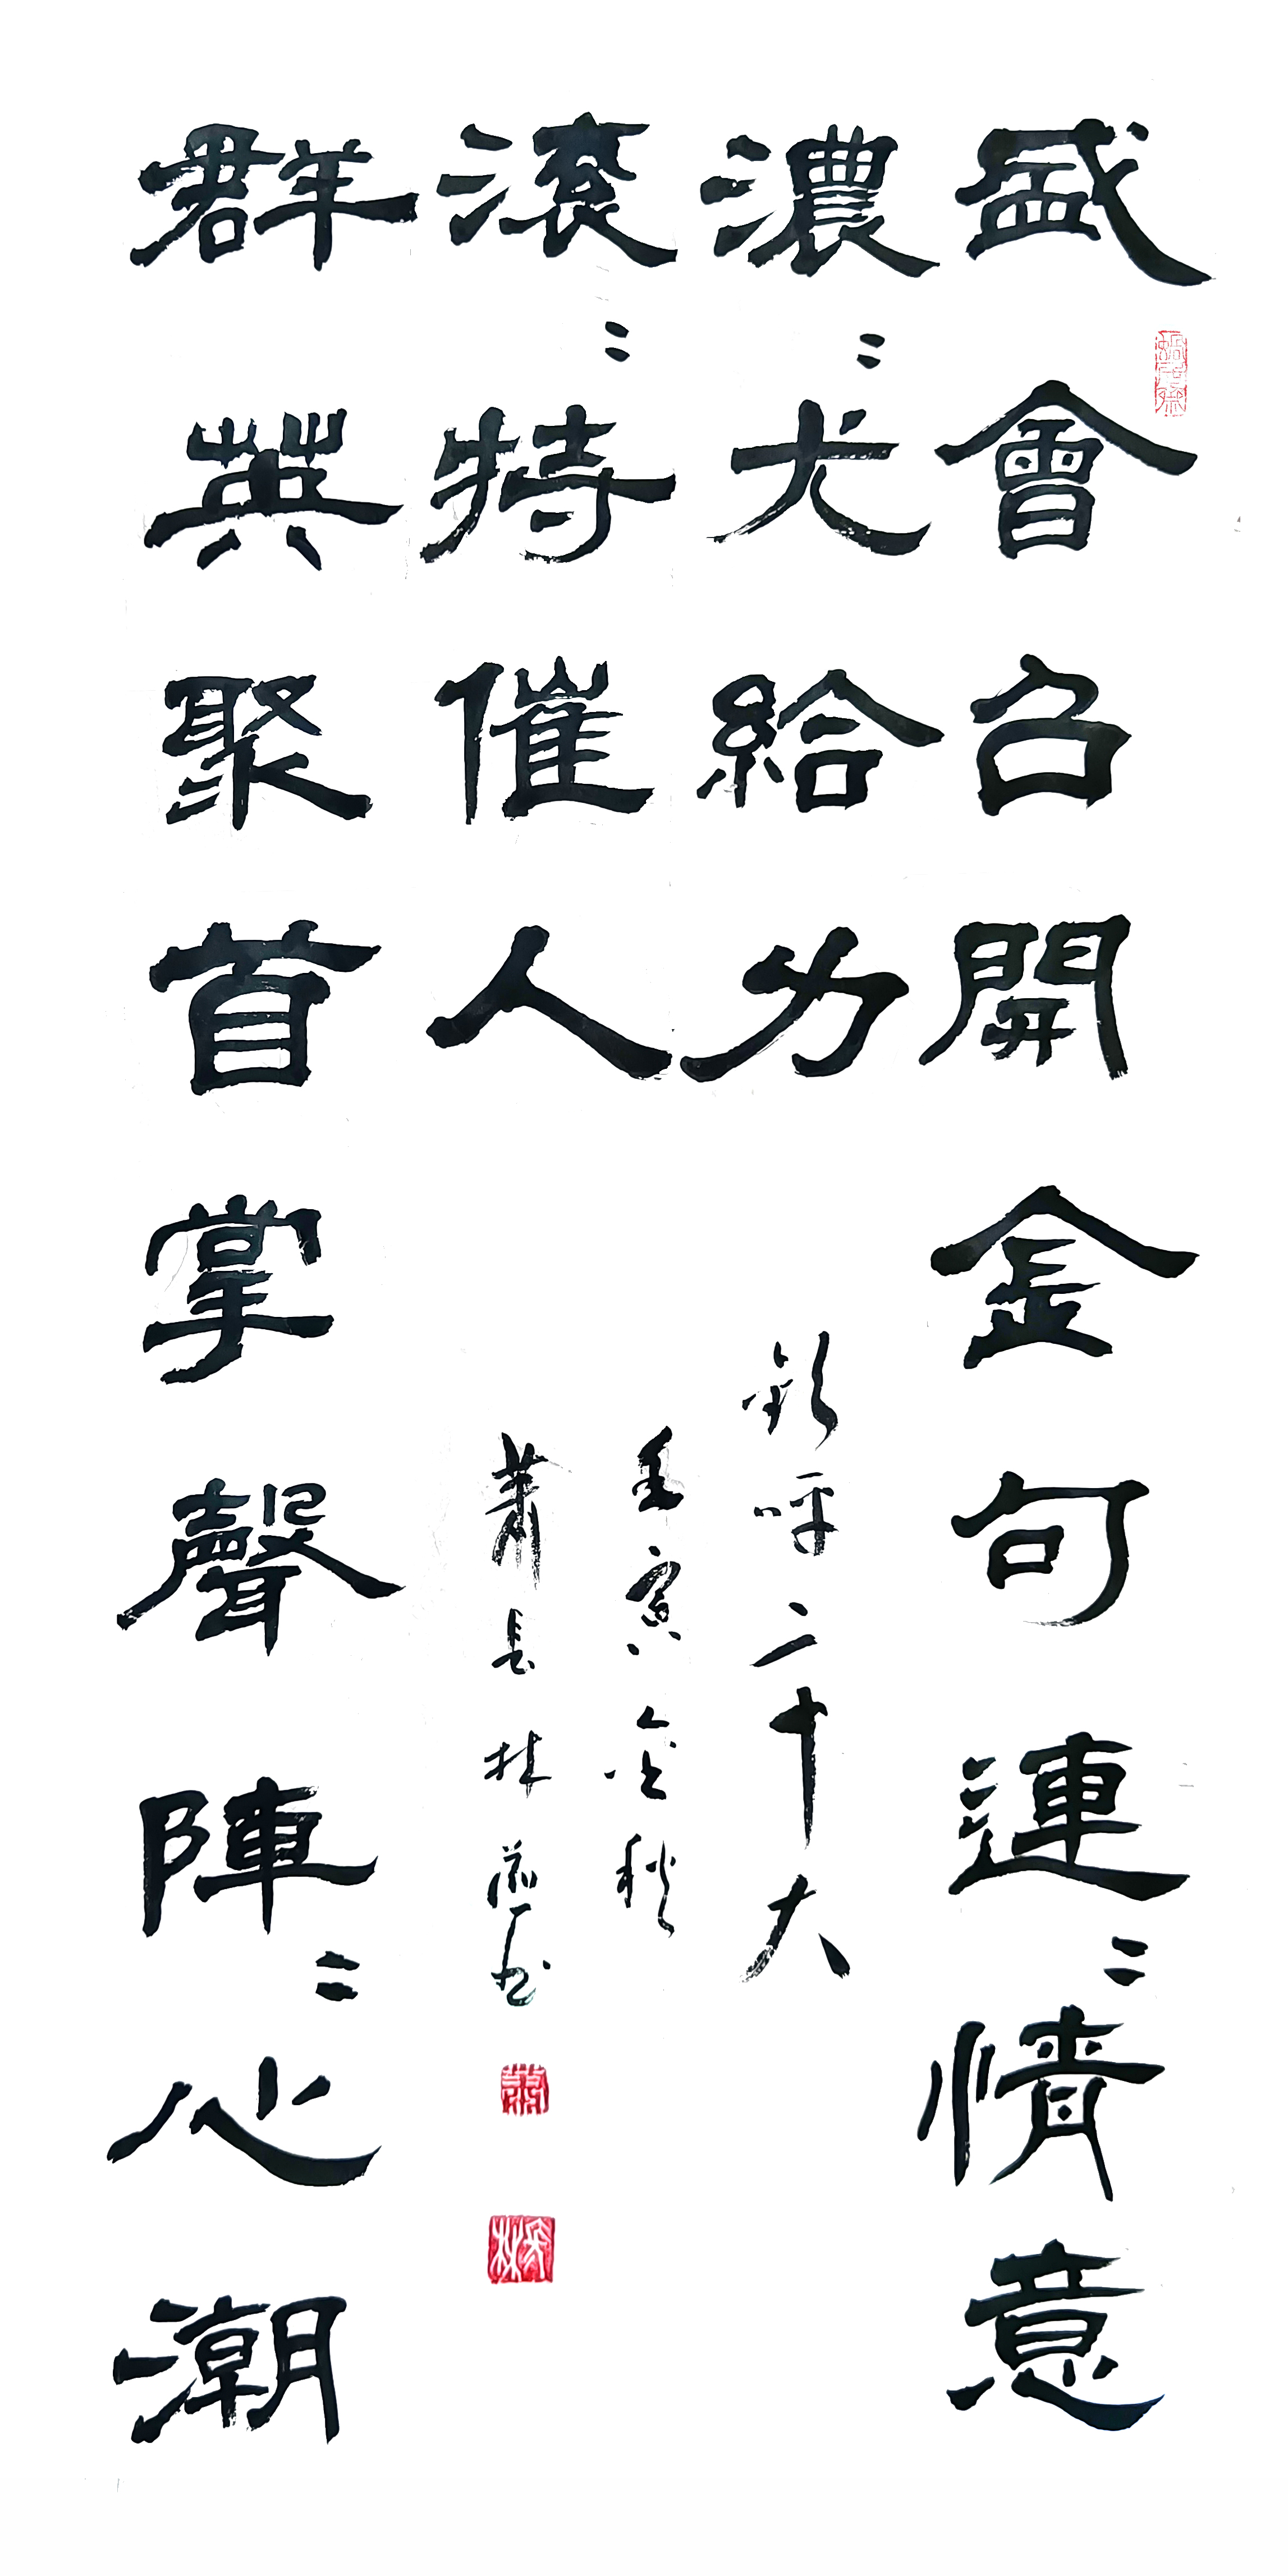 盛會召開金句連〻情意
濃〻尤給力
群英聚首掌聲陣〻心潮
滾〻特催人
歡呼二十大
壬寅金秋
蕭長林書